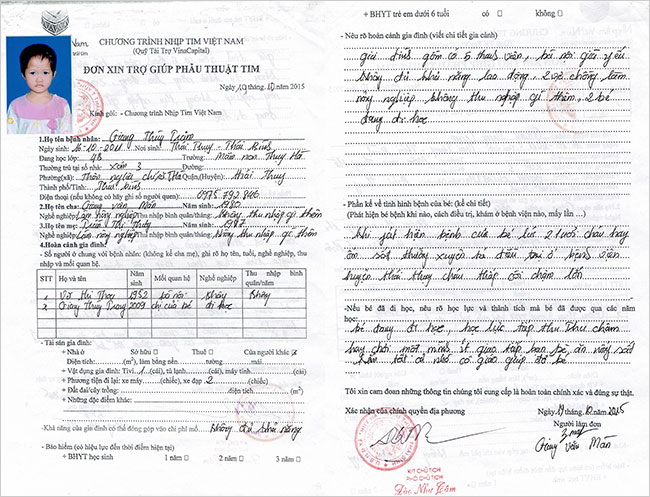 CHƯƠNG TRÌNH NHỊP TIM VIỆT NAM
(Quỹ Tài Trợ VinaCapital)
ĐƠN XIN TRỢ GIÚP PHẪU THUẬT TIM
Ngày 10/10/2015
Kính gửi: - Chương trình Nhịp Tim Việt Nam
1.Họ tên bệnh nhân: Giang Thùy Trâm
Ngày sinh: 16-10-2011 Nơi sinh: Thái Thụy - Thái Bình
Đang học lớp: Trường: Mầm non Thụy Hà
Thường trú tại số nhà: xóm 3 Đường:
Phường(xã): Quận,(Huyện): Thái Thụy
Thành phố/Tỉnh: Thái Bình
Điện thoại (nếu không có hãy ghi số người quen): 0975.792.846
2.Họ tên cha: Giang văn Mãn Năm sinh: 1980
Nghề nghiệp: Làm nông nghiệp Thu nhập bình quân/tháng: không thu nhập gì thêm
3.Họ tên mẹ: Năm sinh: 1987
Nghề nghiệp: Làm nông nghiệp Thu nhập bình quân/tháng: không thu nhập gì thêm
4.Hoàn cảnh gia đình:
- Số người ở chung với bệnh nhân: (không kể cha mẹ), ghi rõ họ tên, tuổi, nghề nghiệp, thu
nhập và mối quan hệ
STT Họ và tên Năm sinh Mối quan hệ Nghề nghiệp Thu nhập bình quân/năm
1 1952 bà nội không không
2 Giang Thùy Trang 2009 chị của bé đi học
- Tài sản gia đình:
+ Nhà ở Sở hữu □ Thuê □ Của người khác
Diện tích: (m²), làm bằng nền tường mái
+ Vật dụng gia đình: Tivi 1 (cái), tủ lạnh (cái), máy tính (cái)
+ Phương tiện đi lại: xe máy (chiếc), xe đạp 2 (chiếc)
+ Đất đai/cây trồng: diện tích (m²)
+ Những đặc điểm khác:
-Khả năng của gia đình có thể đóng góp vào chi phí mổ: không đủ khả năng
- Bảo hiểm (có hiệu lực đến thời điểm hiện tại)
+ BHYT học sinh 1 năm □ 2 năm □ 3 năm □
+ BHYT trẻ em dưới 6 tuổi có □ không □
- Nêu rõ hoàn cảnh gia đình (viết chi tiết gia cảnh)
gia đình gồm có 5 thành viên, bà nội già yếu
không đủ khả năng lao động, 2 vợ chồng làm
nông nghiệp không thu nhập gì thêm, 2 bé
đang đi học
- Phần kể về tình hình bệnh của bé: (kể chi tiết)
(Phát hiện bé bệnh khi nào, cách điều trị, khám ở bệnh viện nào, mấy lần ...)
khi phát hiện bệnh của bé lúc 2 tuổi cháu hay
ốm sốt thường xuyên ta điều trị ở bệnh viện
huyện thái thụy cháu thấp còi chậm lớn
-Nếu bé đã đi học, nêu rõ học lực và thành tích mà bé được qua các năm
học:
bé đang đi học, học lực tiếp thu chậm
hay chơi một mình ít giao tiếp bạn bè, ăn
cô giáo giúp đỡ bé
Tôi xin cam đoan những thông tin tôi cung cấp là hoàn toàn chính xác và đúng sự thật.
Xác nhận của chính quyền địa phương
Ngày 19/10/2015
Người làm đơn
Giang văn Mãn
KT.CHỦ TỊCH
PHÓ CHỦ TỊCH
Đào Như Cẩm